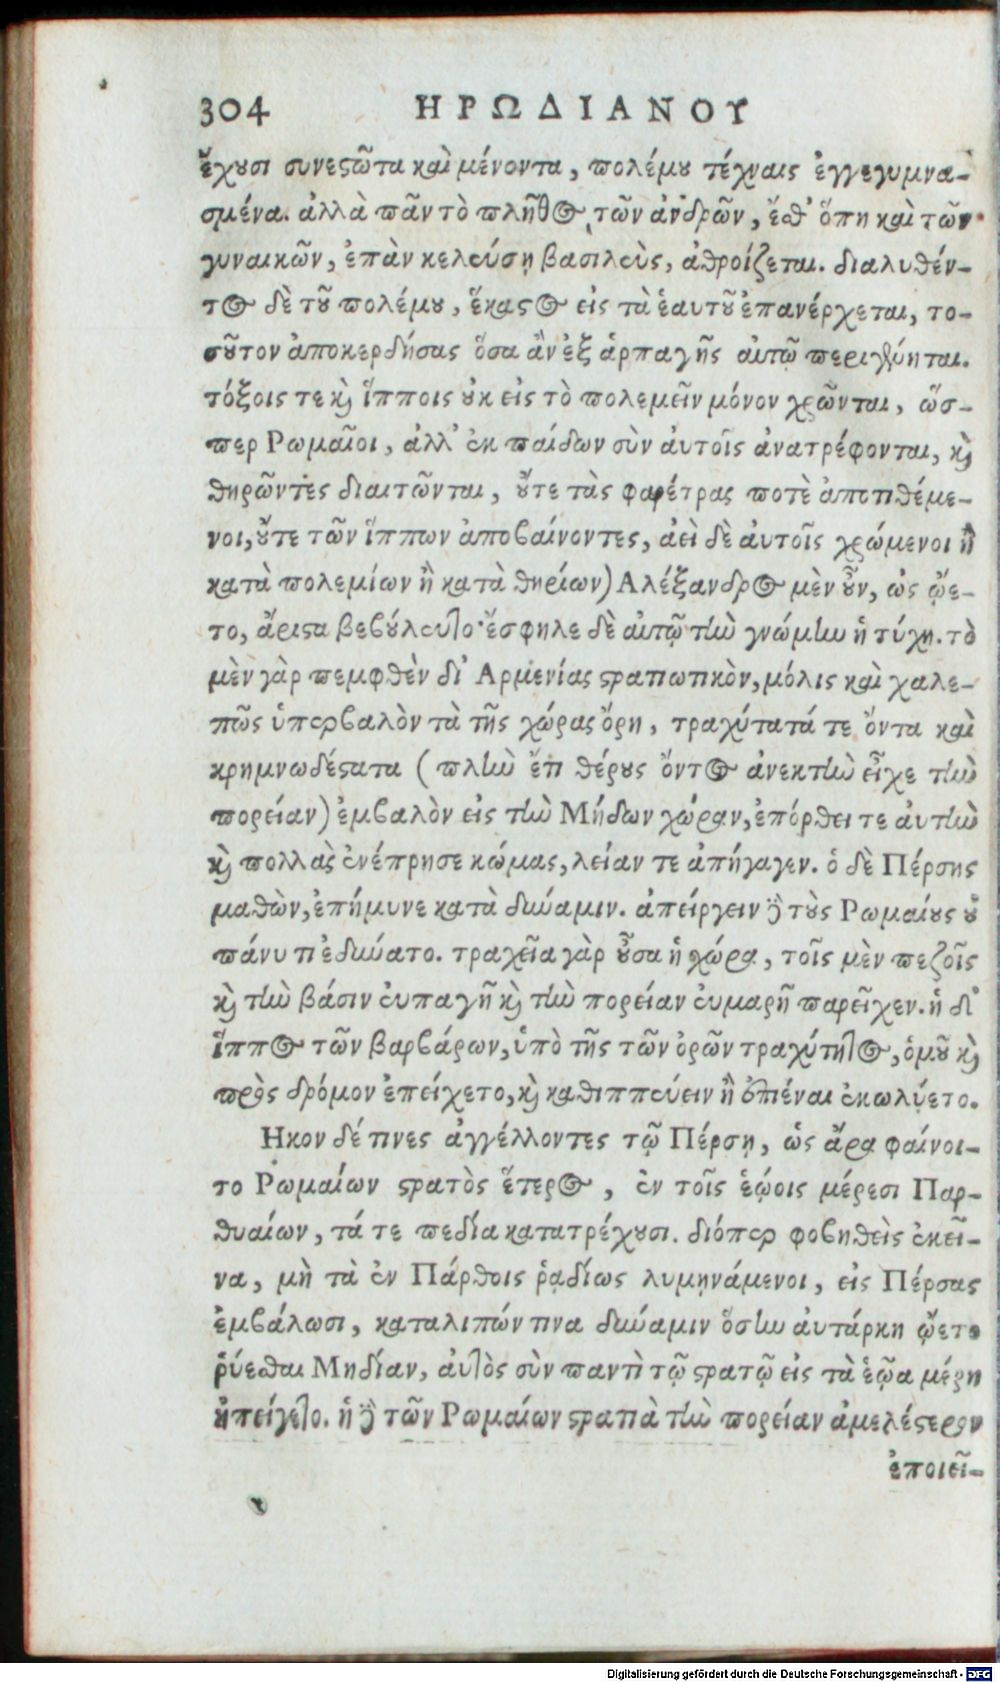 304 ΗΡΩΔΙΑΝΟΥ
ἔχουσι συνεστῶτα καὶ μένοντα, πολέμου τέχναις ἐγγεγυμνα-
σμένα. ἀλλὰ πᾶν τὸ πλῆθος τῶν ἀνδρῶν, ἔσθ' ὅπη καὶ τῶν
γυναικῶν, ἐπὰν κελεύσῃ βασιλεὺς, ἀθροίζεται. διαλυθέν-
τος δὲ τοῦ πολέμου, ἕκαστος εἰς τὰ ἑαυτοῦ ἐπανέρχεται, το-
σοῦτον ἀποκερδήσας ὅσα ἂν ἐξ ἁρπαγῆς αὐτῷ περιγένηται.
τόξοις τε καὶ ἵπποις οὐκ εἰς τὸ πολεμεῖν μόνον χρῶνται, ὥσ-
περ Ρωμαῖοι, ἀλλ' ἐκ παίδων σὺν αὐτοῖς ἀνατρέφονται, καὶ
θηρῶντες διαιτῶνται, οὔτε τὰς φαρέτρας ποτὲ ἀποτιθέμε-
νοι, οὔτε τῶν ἵππων ἀποβαίνοντες, ἀεὶ δὲ αὐτοῖς χρώμενοι ἢ
κατὰ πολεμίων ἢ κατὰ θηρίων) Αλέξανδρος μὲν οὖν, ὡς ᾤε-
το, ἄριστα βεβούλευτο· ἔσφηλε δὲ αὐτῷ τὴν γνώμην ἡ τύχη. τὸ
μὲν γὰρ πεμφθὲν δι' Αρμενίας στρατιωτικὸν, μόλις καὶ χαλε-
πῶς ὑπερβαλὸν τὰ τῆς χώρας ὄρη, τραχύτατά τε ὄντα καὶ
κρημνωδέστατα (πλὴν ἔτι θέρους ὄντος ἀνεκτὴν εἶχε τὴν
πορείαν) ἐμβαλὸν εἰς τὴν Μήδων χώραν, ἐπόρθει τε αὐτὴν
καὶ πολλὰς ἐνέπρησε κώμας, λείαν τε ἀπήγαγεν. ὁ δὲ Πέρσης
μαθὼν, ἐπήμυνε κατὰ δύναμιν. ἀπείργειν δὲ τοὺς Ρωμαίους οὐ
πάνυ τι ἐδύνατο. τραχεῖα γὰρ οὖσα ἡ χώρα, τοῖς μὲν πεζοῖς
καὶ τὴν βάσιν εὐπαγῆ καὶ τὴν πορείαν εὐμαρῆ παρεῖχεν. ἡ δὲ
ἵππος τῶν βαρβάρων, ὑπὸ τῆς τῶν ὀρῶν τραχύτητος, ὁμοῦ καὶ
πρὸς δρόμον ἐπείχετο, καὶ καθιππεύειν ἢ ἐπιέναι ἐκωλύετο.
Ηκον δέ τινες ἀγγέλλοντες τῷ Πέρσῃ, ὡς ἄρα φαίνοι-
το Ρωμαίων στρατὸς ἕτερος, ἐν τοῖς ἑῴοις μέρεσι Παρ-
θυαίων, τά τε πεδία κατατρέχουσι. διόπερ φοβηθεὶς ἐκεῖ-
να, μὴ τὰ ἐν Πάρθοις ῥᾳδίως λυμηνάμενοι, εἰς Πέρσας
ἐμβάλωσι, καταλιπών τινα δύναμιν ὅσην αὐτάρκη ᾤετο
ῥύεσθαι Μηδίαν, αὐτὸς σὺν παντὶ τῷ στρατῷ εἰς τὰ ἑῷα μέρη
ἠπείγετο. ἡ δὲ τῶν Ρωμαίων στρατιὰ τὴν πορείαν ἀμελέστερον
ἐποιεῖ-
Digitalisierung gefördert durch die Deutsche Forschungsgemeinschaft - DFG